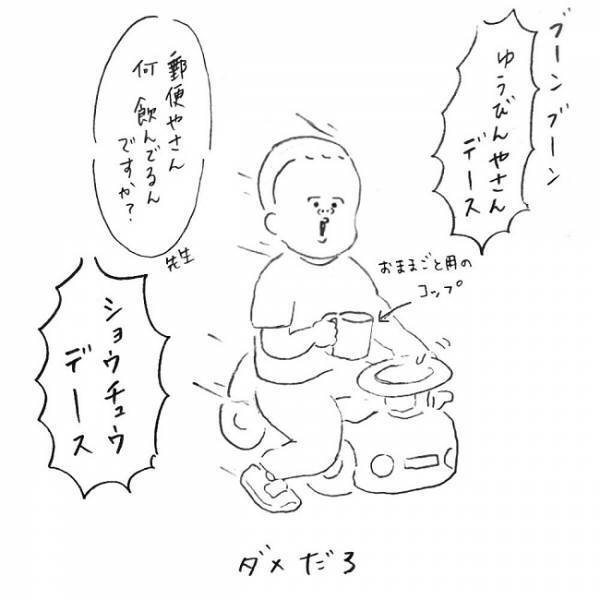 ブーン ブーン
ゆうびんやさん
デース
郵便やさん
何 飲んでるん
ですか?
先生
おままごと用の
コップ
ショウチュウ
デース
ダメだろ